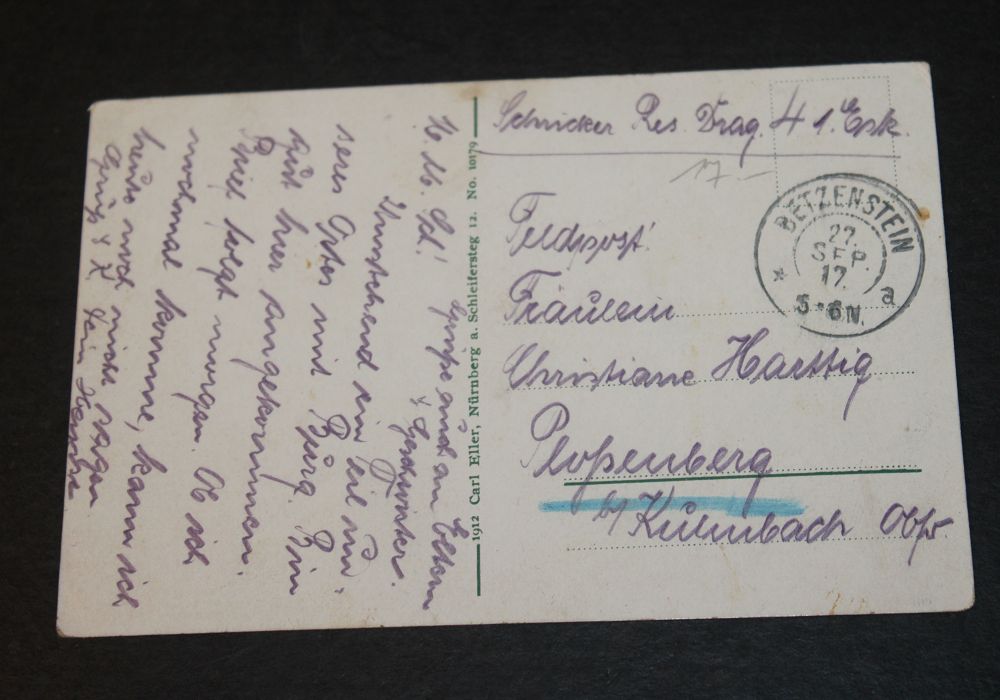 Schricker Res. Drag. 4 1. Esk.
17.-
BETZENSTEIN
27.
SEP.
17.
5-6N.
a
Feldpost!
Fräulein
Christiane Harttig
Ploßenberg
b/ Kulmbach Obfr.
1912 Carl Eller, Nürnberg a. Schleifersteg 12. No. 10179
Grüße auch an Eltern
& Geschwister.
Umstehend ein Teil
Ortes mit Burg. Bin
gut hier angekommen.
Brief folgt morgen. Ob ich
nochmal komme, kann ich
heute noch nicht sagen
Gruß & K. Dein